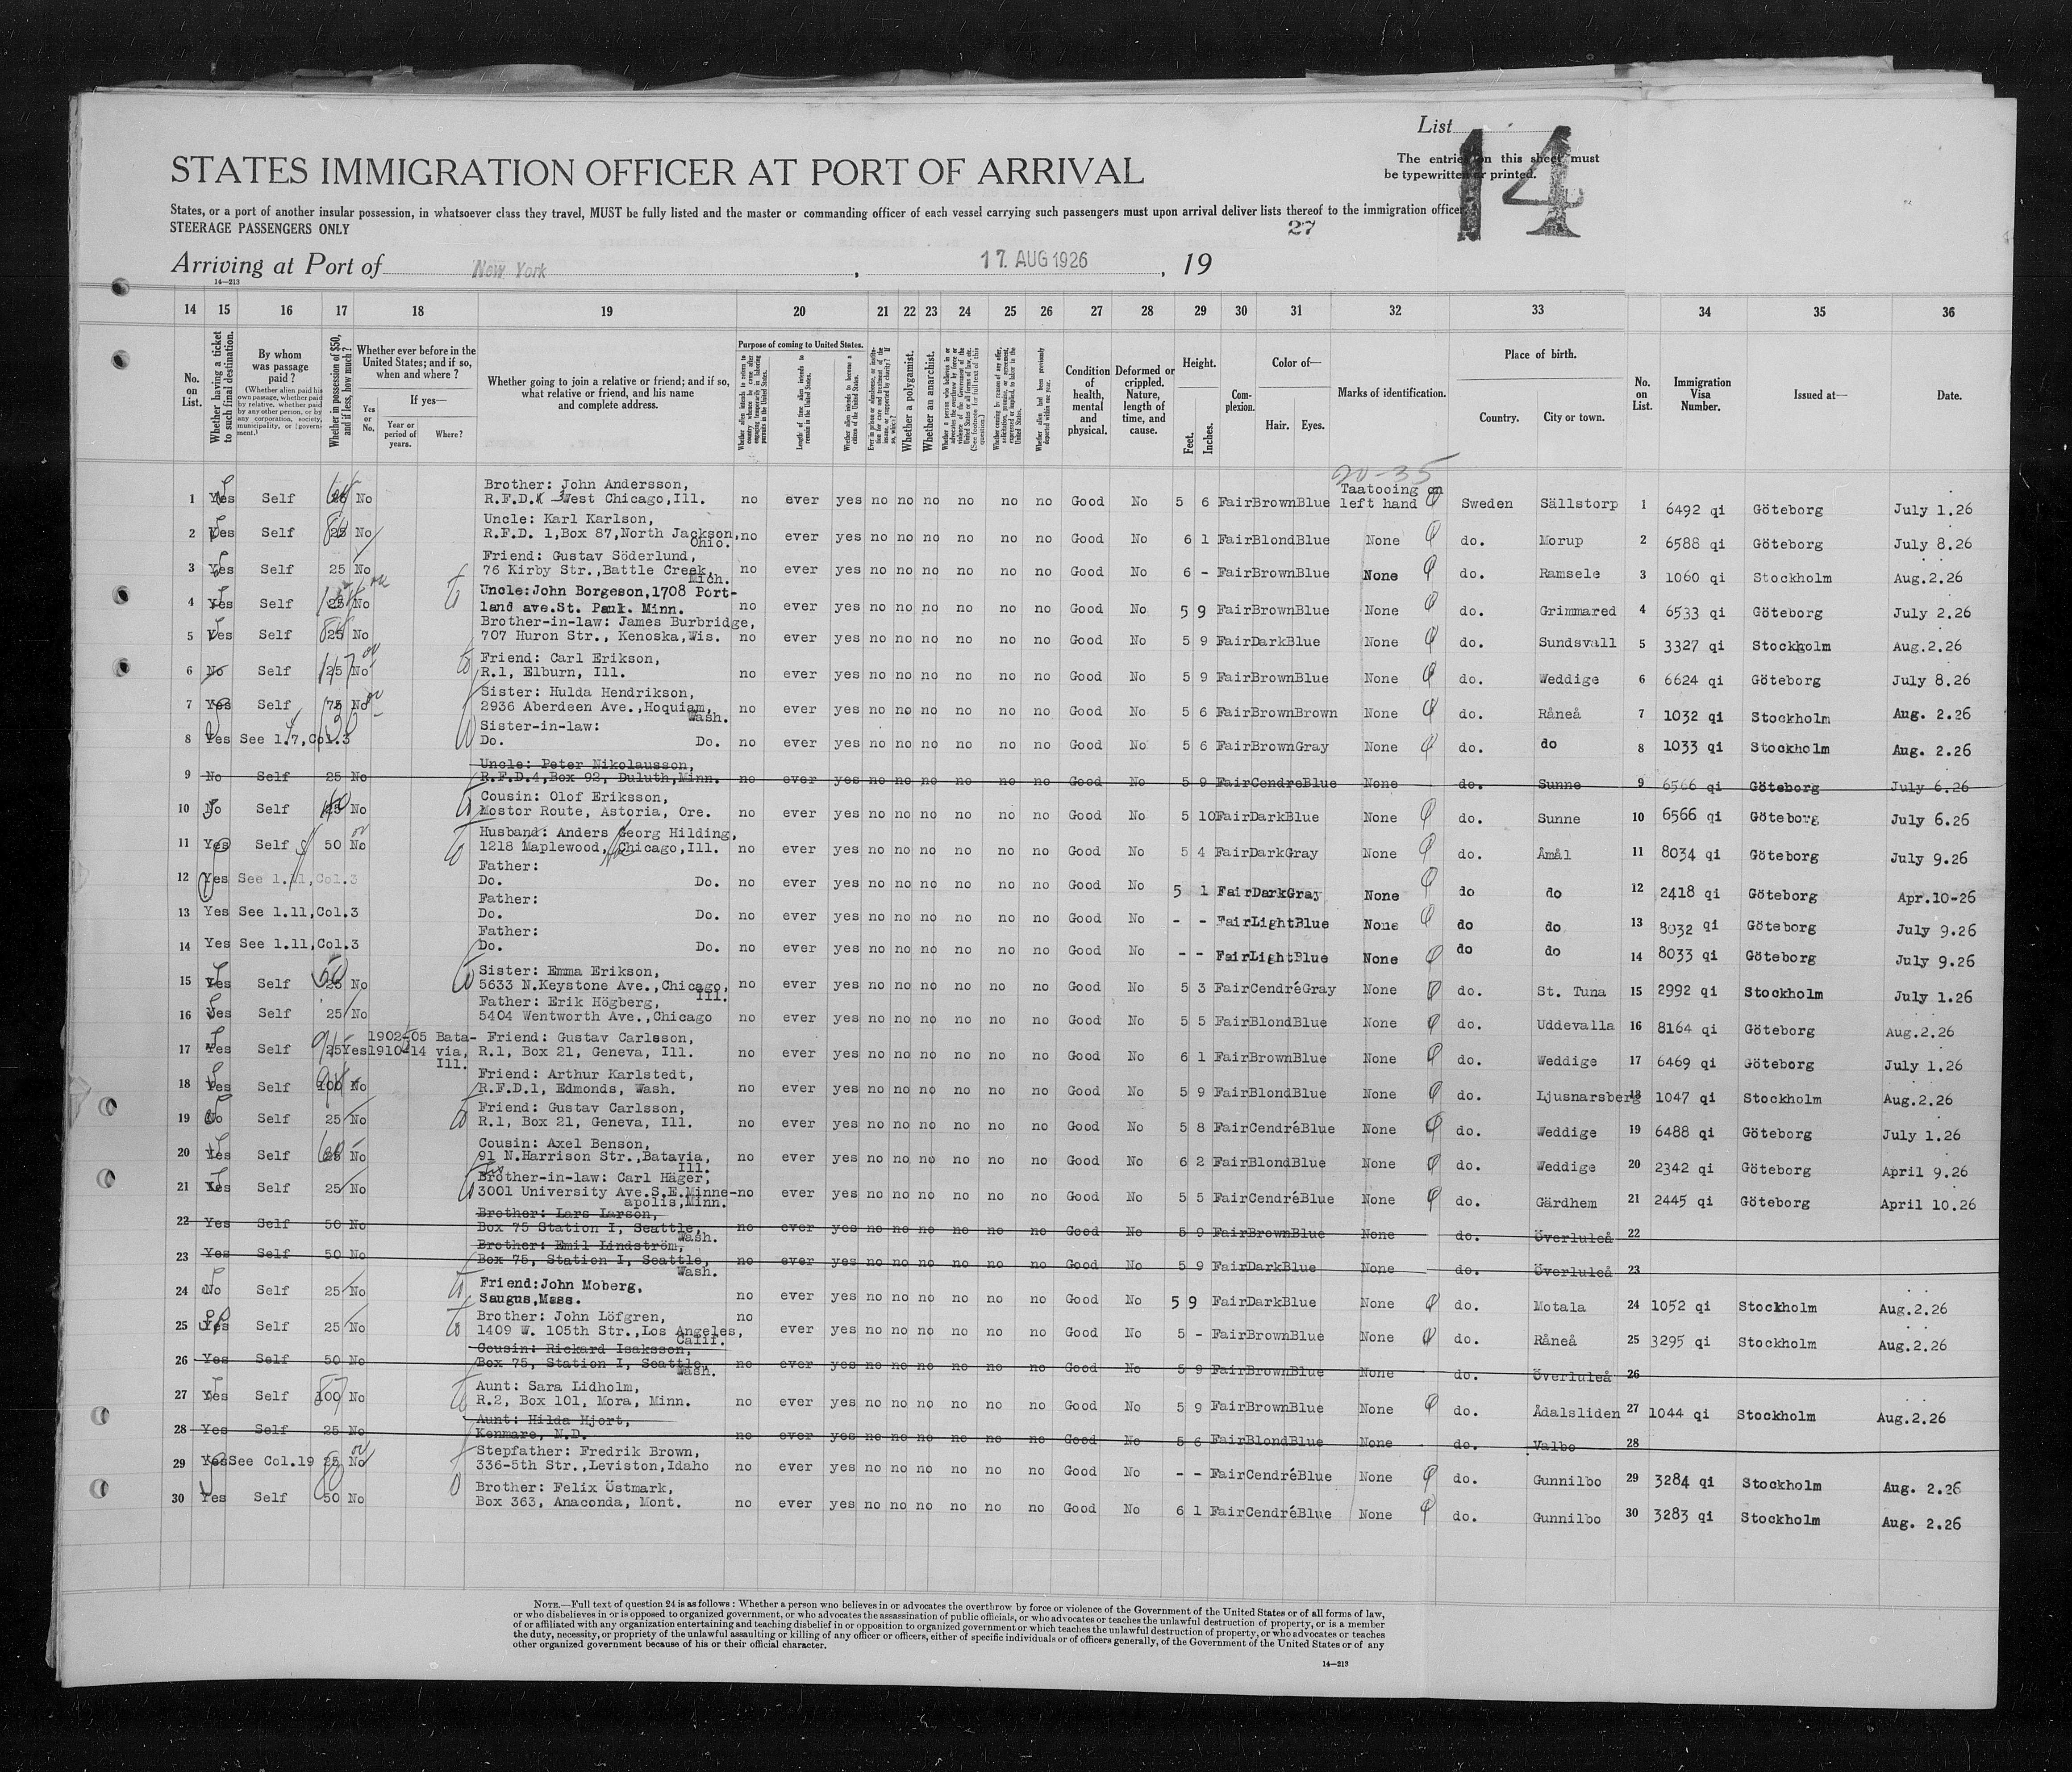 List
14
The entries on this sheet must
be typewritten or printed.
STATES IMMIGRATION OFFICER AT PORT OF ARRIVAL
States, or a port of another insular possession, in whatsoever class they travel, MUST be fully listed and the master or commanding officer of each vessel carrying such passengers must upon arrival deliver lists thereof to the immigration officer
STEERAGE PASSENGERS ONLY
27
Arriving at Port of New York, 17. AUG 1926, 19
14—213
14 15 16 17 18 19 20 21 22 23 24 25 26 27 28 29 30 31 32 33 34 35 36
No. on List.
Whether having a ticket to such final destination.
By whom was passage paid?
(Whether alien paid his own passage, whether paid by relative, whether paid by any other person, or by any corporation, society, municipality, or government.)
Whether in possession of $50, and if less, how much?
Whether ever before in the United States; and if so, when and where?
Yes or No.
If yes—
Year or period of years.
Where?
Whether going to join a relative or friend; and if so, what relative or friend, and his name and complete address.
Purpose of coming to United States.
Whether alien intends to return to country whence he came after engaging temporarily in laboring pursuits in the United States.
Length of time alien intends to remain in the United States.
Whether alien intends to become a citizen of the United States.
Whether a polygamist.
Whether an anarchist.
Condition of health, mental and physical.
Deformed or crippled. Nature, length of time, and cause.
Height.
Feet.
Inches.
Complexion.
Color of—
Hair.
Eyes.
Marks of identification.
Place of birth.
Country.
City or town.
No. on List.
Immigration Visa Number.
Issued at—
Date.
20-35
1 Yes Self 25 No Brother: John Andersson, R.F.D. West Chicago,Ill. no ever yes no no no no no no Good No 5 6 Fair Brown Blue Taatooing on left hand Sweden Sällstorp 1 6492 qi Göteborg July 1.26
2 Yes Self 25 No Uncle: Karl Karlson, R.F.D. 1,Box 87,North Jackson, Ohio. no ever yes no no no no no no Good No 6 1 Fair Blond Blue None do. Morup 2 6588 qi Göteborg July 8.26
3 Yes Self 25 No Friend: Gustav Söderlund, 76 Kirby Str.,Battle Creek, Mich. no ever yes no no no no no no Good No 6 - Fair Brown Blue None do. Ramsele 3 1060 qi Stockholm Aug.2.26
4 Yes Self 25 No Uncle:John Borgeson,1708 Portland ave.St. Paul. Minn. no ever yes no no no no no no Good No 5 9 Fair Brown Blue None do. Grimmared 4 6533 qi Göteborg July 2.26
5 Yes Self 25 No Brother-in-law: James Burbridge, 707 Huron Str., Kenoska,Wis. no ever yes no no no no no no Good No 5 9 Fair Dark Blue None do. Sundsvall 5 3327 qi Stockholm Aug.2.26
6 No Self 25 No Friend: Carl Erikson, R.1, Elburn, Ill. no ever yes no no no no no no Good No 5 9 Fair Brown Blue None do. Weddige 6 6624 qi Göteborg July 8.26
7 Yes Self 75 No Sister: Hulda Hendrikson, 2936 Aberdeen Ave.,Hoquiam, Wash. no ever yes no no no no no no Good No 5 6 Fair Brown Brown None do. Råneå 7 1032 qi Stockholm Aug. 2.26
8 Yes See l.7,Col.3 Sister-in-law: Do. Do. no ever yes no no no no no no Good No 5 6 Fair Brown Gray None do. do 8 1033 qi Stockholm Aug. 2.26
9 No Self 25 No Uncle: Peter Nikolausson, R.F.D.4,Box 92, Duluth,Minn. no ever yes no no no no no no Good No 5 9 Fair Cendre Blue None do. Sunne 9 6566 qi Göteborg July 6.26
10 No Self 25 No Cousin: Olof Eriksson, Mostor Route, Astoria, Ore. no ever yes no no no no no no Good No 5 10 Fair Dark Blue None do. Sunne 10 6566 qi Göteborg July 6.26
11 Yes Self 50 No Husband: Anders Georg Hilding, 1218 Maplewood, Chicago,Ill. no ever yes no no no no no no Good No 5 4 Fair Dark Gray None do. Åmål 11 8034 qi Göteborg July 9.26
12 Yes See l.11,Col.3 Father: Do. Do. no ever yes no no no no no no Good No 5 1 Fair Dark Gray None do do 12 2418 qi Göteborg Apr.10-26
13 Yes See l.11,Col.3 Father: Do. Do. no ever yes no no no no no no Good No - - Fair Light Blue None do do 13 8032 qi Göteborg July 9.26
14 Yes See l.11,Col.3 Father: Do. Do. no ever yes no no no no no no Good No - - Fair Light Blue None do do 14 8033 qi Göteborg July 9.26
15 Yes Self 25 No Sister: Emma Erikson, 5633 N.Keystone Ave.,Chicago, Ill. no ever yes no no no no no no Good No 5 3 Fair Cendré Gray None do. St. Tuna 15 2992 qi Stockholm July 1.26
16 Yes Self 25 No Father: Erik Högberg, 5404 Wentworth Ave.,Chicago no ever yes no no no no no no Good No 5 5 Fair Blond Blue None do. Uddevalla 16 8164 qi Göteborg Aug.2.26
17 Yes Self 25 Yes 1902-05 1910-14 Batavia, Ill. Friend: Gustav Carlsson, R.1, Box 21, Geneva, Ill. no ever yes no no no no no no Good No 6 1 Fair Brown Blue None do. Weddige 17 6469 qi Göteborg July 1.26
18 Yes Self 100 No Friend: Arthur Karlstedt, R.F.D.1, Edmonds, Wash. no ever yes no no no no no no Good No 5 9 Fair Blond Blue None do. Ljusnarsberg 18 1047 qi Stockholm Aug.2.26
19 No Self 25 No Friend: Gustav Carlsson, R.1, Box 21, Geneva, Ill. no ever yes no no no no no no Good No 5 8 Fair Cendré Blue None do. Weddige 19 6488 qi Göteborg July 1.26
20 Yes Self 25 No Cousin: Axel Benson, 91 N.Harrison Str.,Batavia, Ill. no ever yes no no no no no no Good No 6 2 Fair Blond Blue None do. Weddige 20 2342 qi Göteborg April 9.26
21 Yes Self 25 No Brother-in-law: Carl Häger, 3001 University Ave.S.E.Minneapolis,Minn. no ever yes no no no no no no Good No 5 5 Fair Cendré Blue None do. Gärdhem 21 2445 qi Göteborg April 10.26
22 Yes Self 50 No Brother: Lars Larson, Box 75 Station I, Seattle, Wash. no ever yes no no no no no no Good No 5 9 Fair Brown Blue None do. Överluleå 22
23 Yes Self 50 No Brother: Emil Lindström, Box 75, Station I, Seattle, Wash. no ever yes no no no no no no Good No 5 9 Fair Dark Blue None do. Överluleå 23
24 No Self 25 No Friend:John Moberg, Saugus,Mass. no ever yes no no no no no no Good No 5 9 Fair Dark Blue None do. Motala 24 1052 qi Stockholm Aug.2.26
25 Yes Self 25 No Brother: John Löfgren, 1409 W. 105th Str.,Los Angeles, Calif. no ever yes no no no no no no Good No 5 - Fair Brown Blue None do. Råneå 25 3295 qi Stockholm Aug.2.26
26 Yes Self 50 No Cousin: Rickard Isaksson, Box 75, Station I, Seattle, Wash. no ever yes no no no no no no Good No 5 9 Fair Brown Blue None do. Överluleå 26
27 Yes Self 100 No Aunt: Sara Lidholm, R.2, Box 101, Mora, Minn. no ever yes no no no no no no Good No 5 9 Fair Brown Blue None do. Ådalsliden 27 1044 qi Stockholm Aug.2.26
28 Yes Self 25 No Aunt: Hilda Hjort, Kenmare, N.D. no ever yes no no no no no no Good No 5 6 Fair Blond Blue None do. Valbo 28
29 Yes See Col.19 25 No Stepfather: Fredrik Brown, 336-5th Str.,Leviston,Idaho no ever yes no no no no no no Good No - - Fair Cendré Blue None do. Gunnilbo 29 3284 qi Stockholm Aug. 2.26
30 Yes Self 50 No Brother: Felix Östmark, Box 363, Anaconda, Mont. no ever yes no no no no no no Good No 6 1 Fair Cendré Blue None do. Gunnilbo 30 3283 qi Stockholm Aug. 2.26
NOTE.—Full text of question 24 is as follows: Whether a person who believes in or advocates the overthrow by force or violence of the Government of the United States or of all forms of law,
or who disbelieves in or is opposed to organized government, or who advocates the assassination of public officials, or who advocates or teaches the unlawful destruction of property, or is a member
of or affiliated with any organization entertaining and teaching disbelief in or opposition to organized government or which teaches the unlawful destruction of property, or who advocates or teaches
the duty, necessity, or propriety of the unlawful assaulting or killing of any officer or officers, either of specific individuals or of officers generally, of the Government of the United States or of any
other organized government because of his or their official character.
14—213